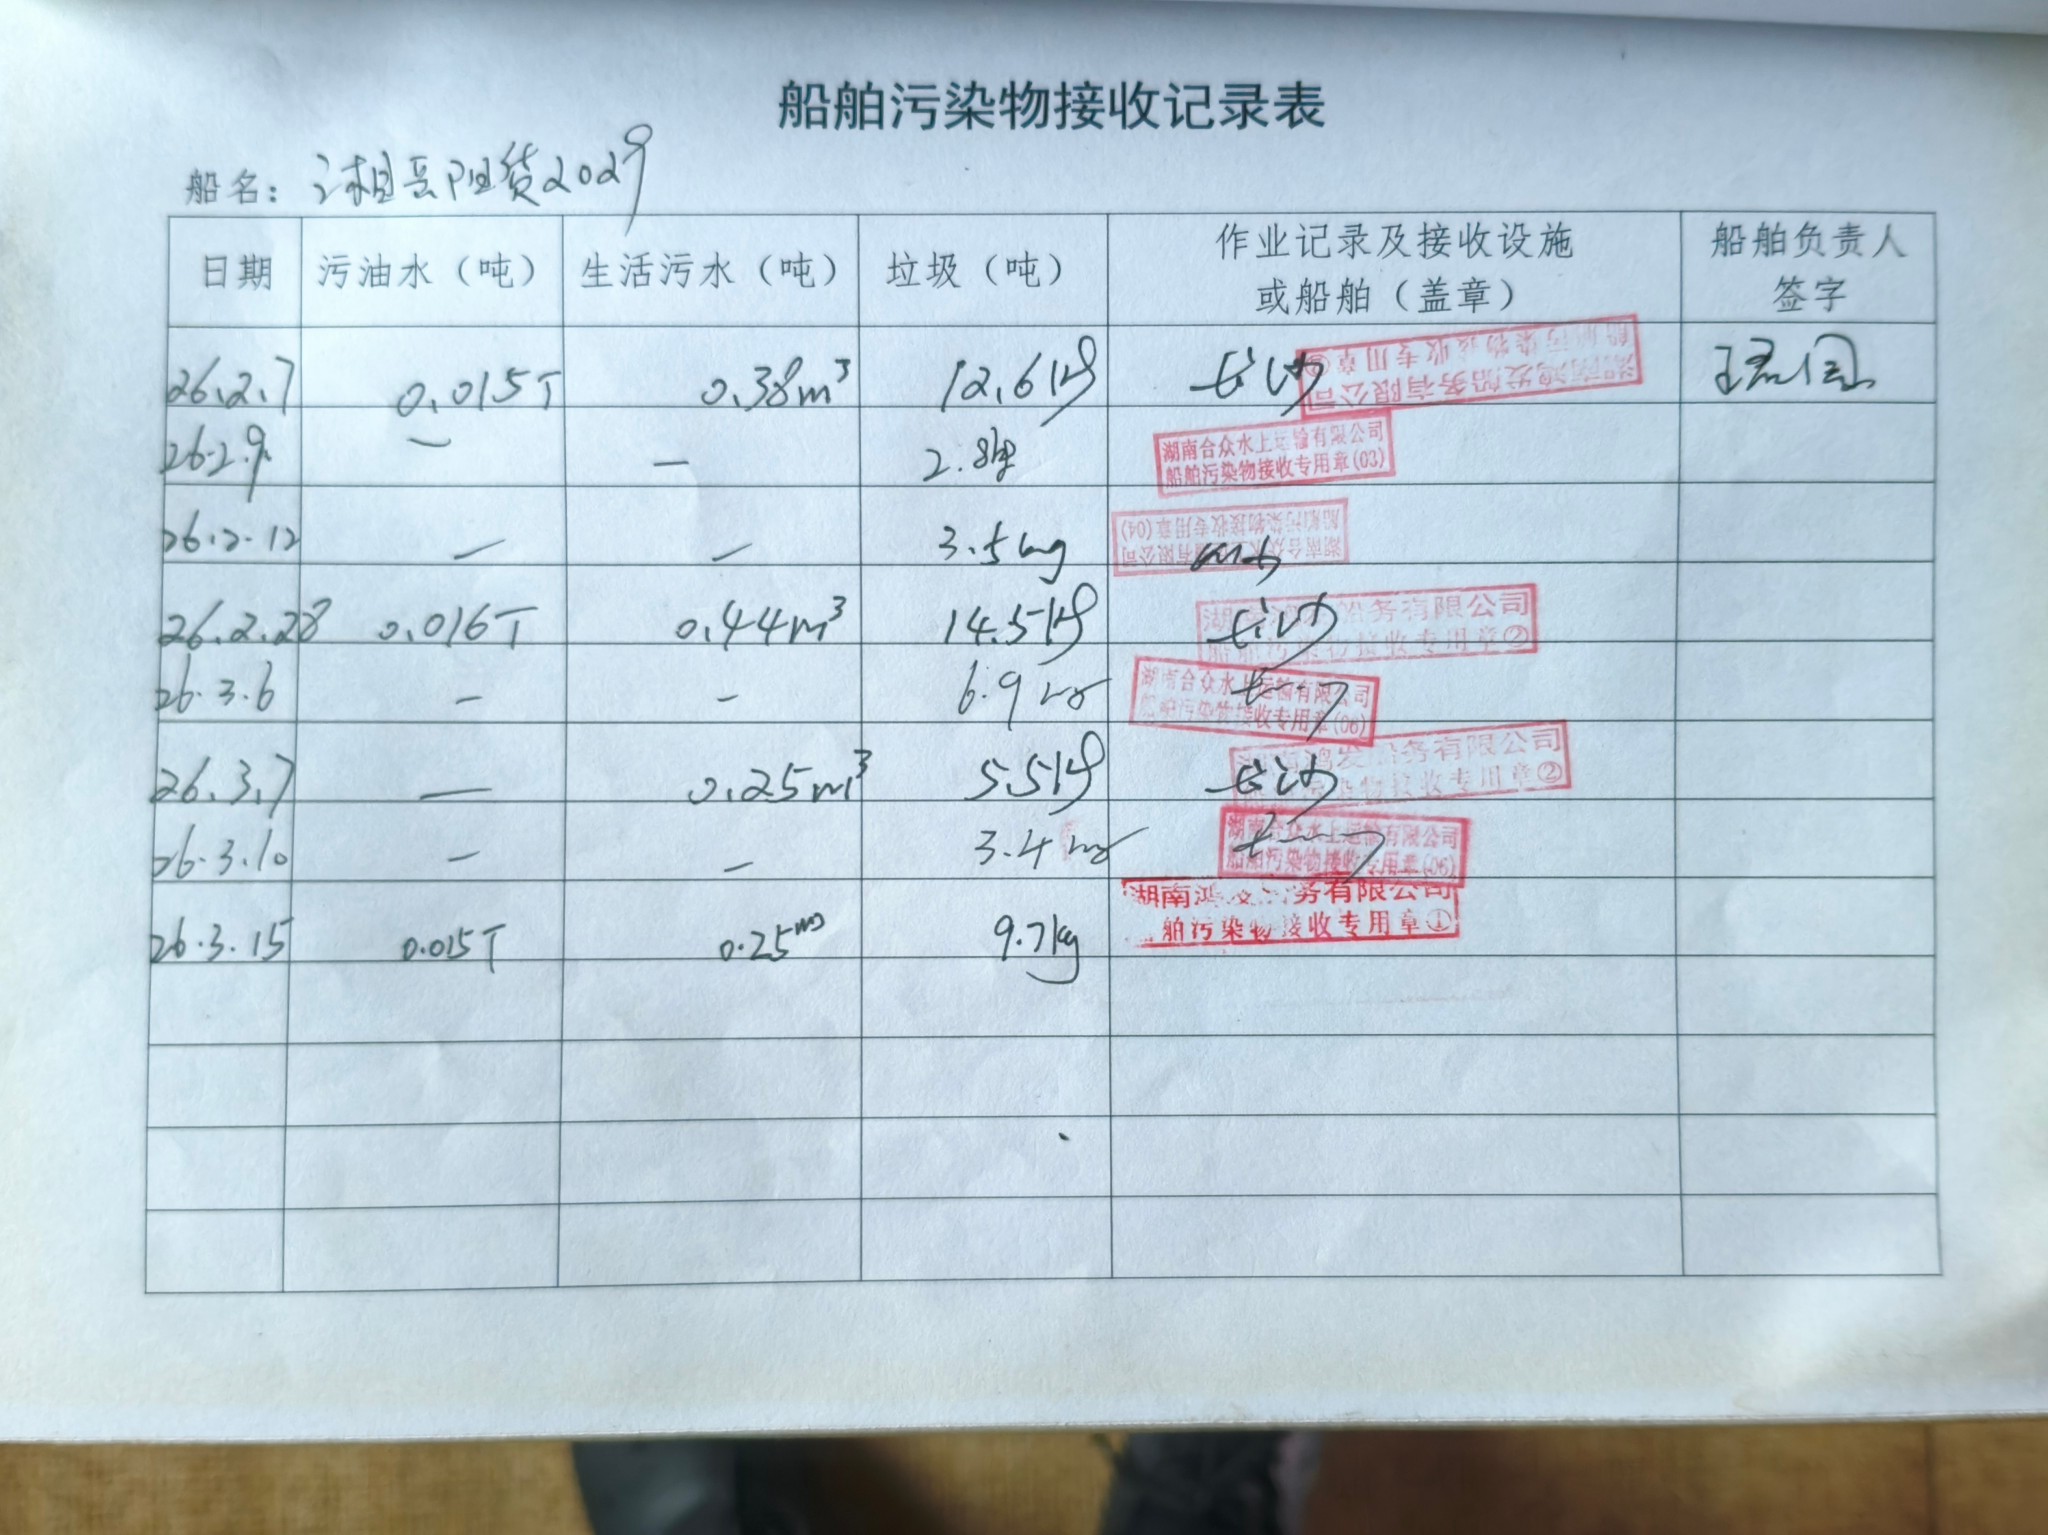 船舶污染物接收记录表
船名：湘岳阳货2029
日期 污油水（吨） 生活污水（吨） 垃圾（吨） 作业记录及接收设施或船舶（盖章） 船舶负责人签字
26.2.7 0.015T 0.38m³ 12.6kg 长沙 湖南鸿发船务有限公司 船舶污染物接收专用章
26.2.9 — — 2.8kg 湖南合众水上运输有限公司 船舶污染物接收专用章(03)
26.2.12 — — 3.5kg 湖南合众水上运输有限公司 船舶污染物接收专用章(04)
26.2.28 0.016T 0.44m³ 14.5kg 长沙 湖南鸿发船务有限公司 船舶污染物接收专用章②
26.3.6 — — 6.9kg 湖南合众水上运输有限公司 船舶污染物接收专用章(06)
26.3.7 — 0.25m³ 5.5kg 长沙 湖南鸿发船务有限公司 船舶污染物接收专用章②
26.3.10 — — 3.4kg 湖南合众水上运输有限公司 船舶污染物接收专用章(06)
26.3.15 0.015T 0.25m³ 9.7kg 湖南鸿发船务有限公司 船舶污染物接收专用章①